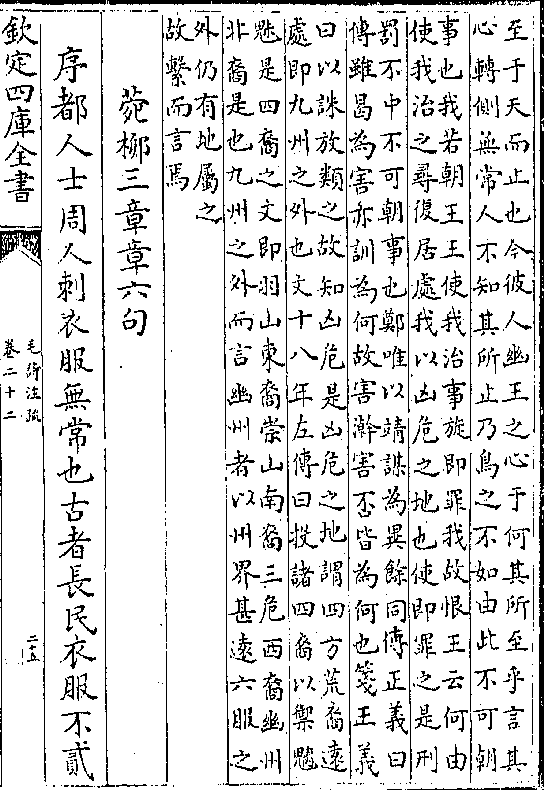 至于天而止也今彼人幽王之心于何其所至乎言其
心轉側無常人不知其所止乃鳥之不如由此不可朝
事也我若朝王王使我治事旋即罪我故恨王云何由
使我治之尋復居處我以凶危之地也使即罪之是刑
罰不中不可朝事也鄭唯以靖謀為異餘同傳正義曰
傳雖曷為害亦訓為何故害澣害否皆為何也箋王義
曰以誅放類之故知凶危是凶危之地謂四方荒裔遠
處即九州之外也文十八年左傳曰投諸四裔以禦魑
魅是四裔之文即羽山東裔崇山南裔三危西裔幽州
北裔是也九州之外而言幽州者以州界甚遠六服之
外仍有地屬之
故繫而言焉
菀柳三章章六句
序都人士周人刺衣服無常也古者長民衣服不貳
欽定四庫全書
毛詩注疏
卷二十二
二十五